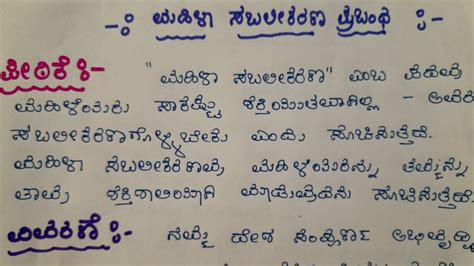 -: ಮಹಿಳಾ ಸಬಲೀಕರಣ ಪ್ರಬಂಧ :-
ಪೀಠಿಕೆ :- "ಮಹಿಳಾ ಸಬಲೀಕರಣ" ಎಂಬ ಪದವು
ಮಹಿಳೆಯರು ಸಾಕಷ್ಟು ಶಕ್ತಿಯುತವಾಗಿಲ್ಲ - ಅವರು
ಸಬಲೀಕರಣಗೊಳ್ಳಬೇಕು ಎಂದು ಸೂಚಿಸುತ್ತದೆ.
ಮಹಿಳಾ ಸಬಲೀಕರಣವು ಮಹಿಳೆಯರನ್ನು ತಮ್ಮನ್ನು
ತಾವು ಶಕ್ತಿಶಾಲಿಯಾಗಿ ಮಾಡುವುದನ್ನು ಸೂಚಿಸುತ್ತದೆ.
ವಿವರಣೆ :- ನಮ್ಮ ದೇಶ ಸಂಪೂರ್ಣ ಅಭಿವೃದ್ಧಿ